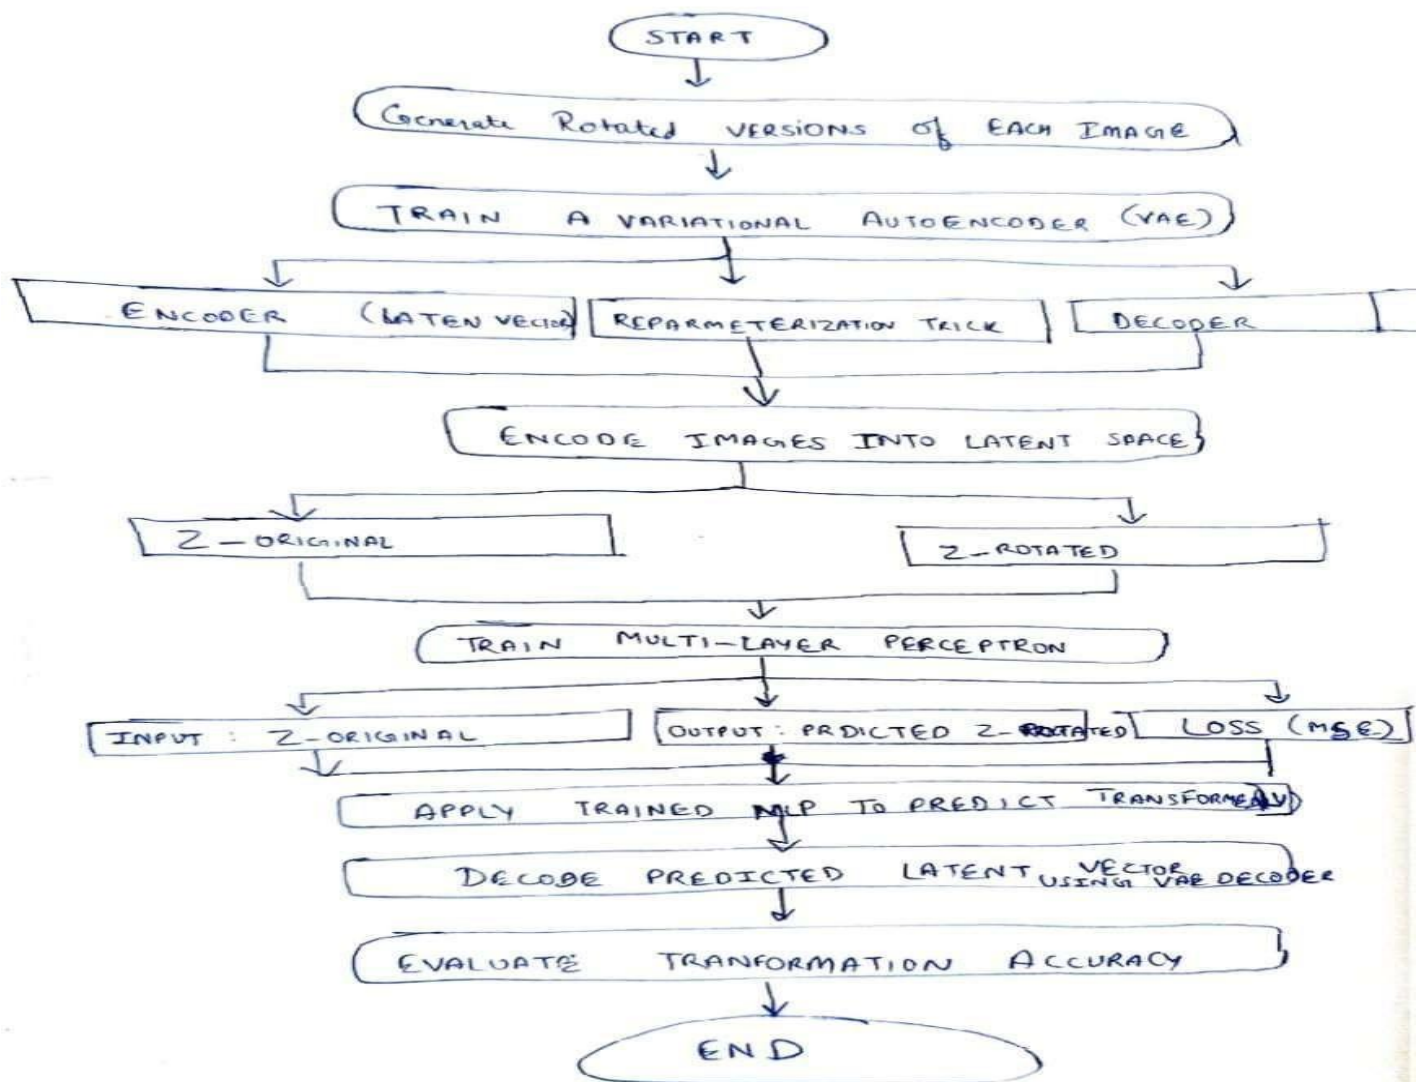 START
Generate Rotated VERSIONS of EACH IMAGE
TRAIN A VARIATIONAL AUTOENCODER (VAE)
ENCODER (LATEN VECTOR)
REPARMETERIZATION TRICK
DECODER
ENCODE IMAGES INTO LATENT SPACE
Z-ORIGINAL
Z-ROTATED
TRAIN MULTI-LAYER PERCEPTRON
INPUT: Z-ORIGINAL
OUTPUT: PRDICTED Z-ROTATED
LOSS (MSE)
APPLY TRAINED MLP TO PREDICT TRANSFORMED
DECODE PREDICTED LATENT VECTOR
USING VAE DECODER
EVALUATE TRANFORMATION ACCURACY
END